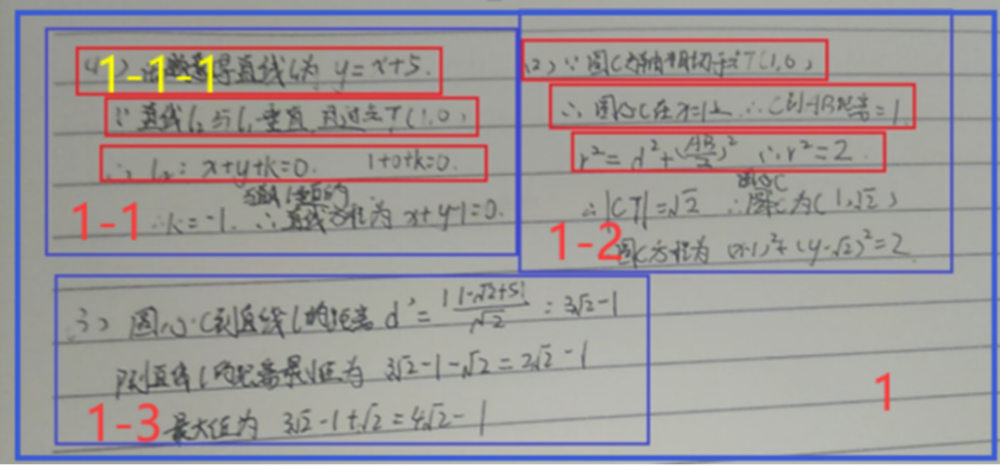 (1) 由题意得直线l为 y=x+5.
1-1-1
∵直线l₂与l₁垂直,且过点T(1,0)
∴l₂: x+y+k=0. 1+0+k=0.
与直线l垂直的
∴k=-1. ∴直线方程为 x+y-1=0.
1-1
(2) ∵圆C与x轴相切于点T(1,0)
∴圆心C在x=1上 ∴C到AB距离=1.
r²=d²+(AB/2)² ∴r²=2.
圆心C
∴|CT|=√2 ∴ 为(1,√2)
1-2
圆C方程为 (x-1)²+(y-√2)²=2
(3) 圆心C到直线l的距离d'=|1-√2+5|/√2=3√2-1
P到直线l的距离最小值为 3√2-1-√2=2√2-1
1-3
最大值为 3√2-1+√2=4√2-1
1